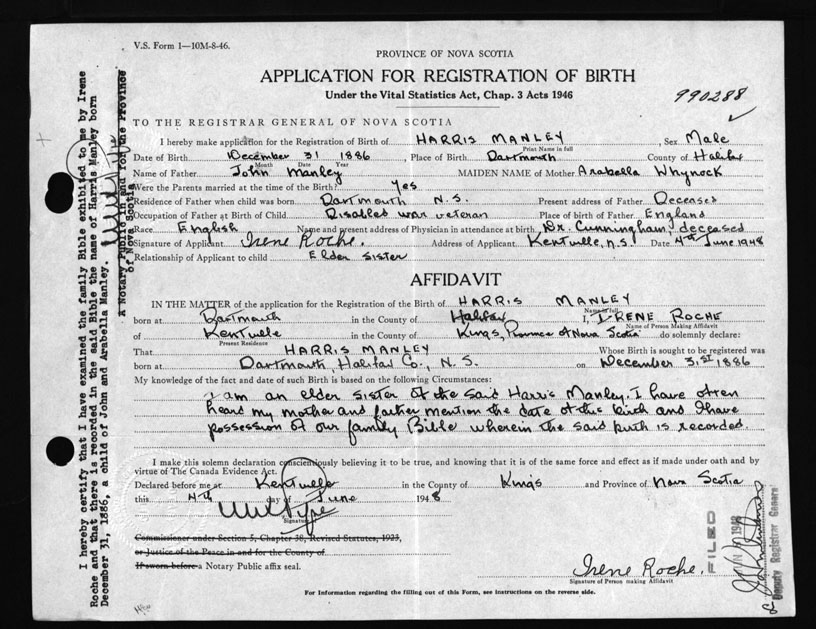 V.S. Form 1—10M-8-46.
PROVINCE OF NOVA SCOTIA
APPLICATION FOR REGISTRATION OF BIRTH
Under the Vital Statistics Act, Chap. 3 Acts 1946
990288
TO THE REGISTRAR GENERAL OF NOVA SCOTIA
I hereby make application for the Registration of Birth of HARRIS MANLEY, Sex Male
Print Name in full
Date of Birth December 31 1886, Place of Birth Dartmouth County of Halifax
Month Date Year
Name of Father John Manley MAIDEN NAME of Mother Arabella Whynock
Were the Parents married at the time of the Birth? Yes
Residence of Father when child was born Dartmouth N.S. Present address of Father Deceased
Occupation of Father at Birth of Child Disabled war veteran Place of birth of Father England
Race English Name and present address of Physician in attendance at birth Dr. Cunningham, deceased
Signature of Applicant Irene Roche. Address of Applicant Kentville, N.S. Date 4th June 1948
Relationship of Applicant to child Elder Sister
AFFIDAVIT
IN THE MATTER of the application for the Registration of the Birth of HARRIS MANLEY
Name in full
born at Dartmouth in the County of Halifax I, IRENE ROCHE
Name of Person Making Affidavit
of Kentville in the County of Kings, Province of Nova Scotia do solemnly declare:
Present Residence
That HARRIS MANLEY Whose Birth is sought to be registered was
born at Dartmouth, Halifax Co., N.S. on December 31st 1886
My knowledge of the fact and date of such Birth is based on the following Circumstances:
I am an elder sister of the said Harris Manley. I have often
heard my mother and father mention the date of this birth and I have
possession of our family Bible wherein the said birth is recorded.
I make this solemn declaration conscientiously believing it to be true, and knowing that it is of the same force and effect as if made under oath and by
virtue of The Canada Evidence Act.
Declared before me at Kentville in the County of Kings and Province of Nova Scotia
this 4th day of June 1948
Signature
Commissioner under Section 5, Chapter 38, Revised Statutes, 1923,
or Justice of the Peace in and for the County of
If sworn before a Notary Public affix seal.
Irene Roche.
Signature of Person making Affidavit
For Information regarding the filling out of this Form, see instructions on the reverse side.
I hereby certify that I have examined the family Bible exhibited to me by Irene
Roche and that there is recorded in the said Bible the name of Harris Manley born
December 31, 1886, a child of John and Arabella Manley.
A Notary Public in and for the Province
of Nova Scotia
FILED
1948
Deputy Registrar General